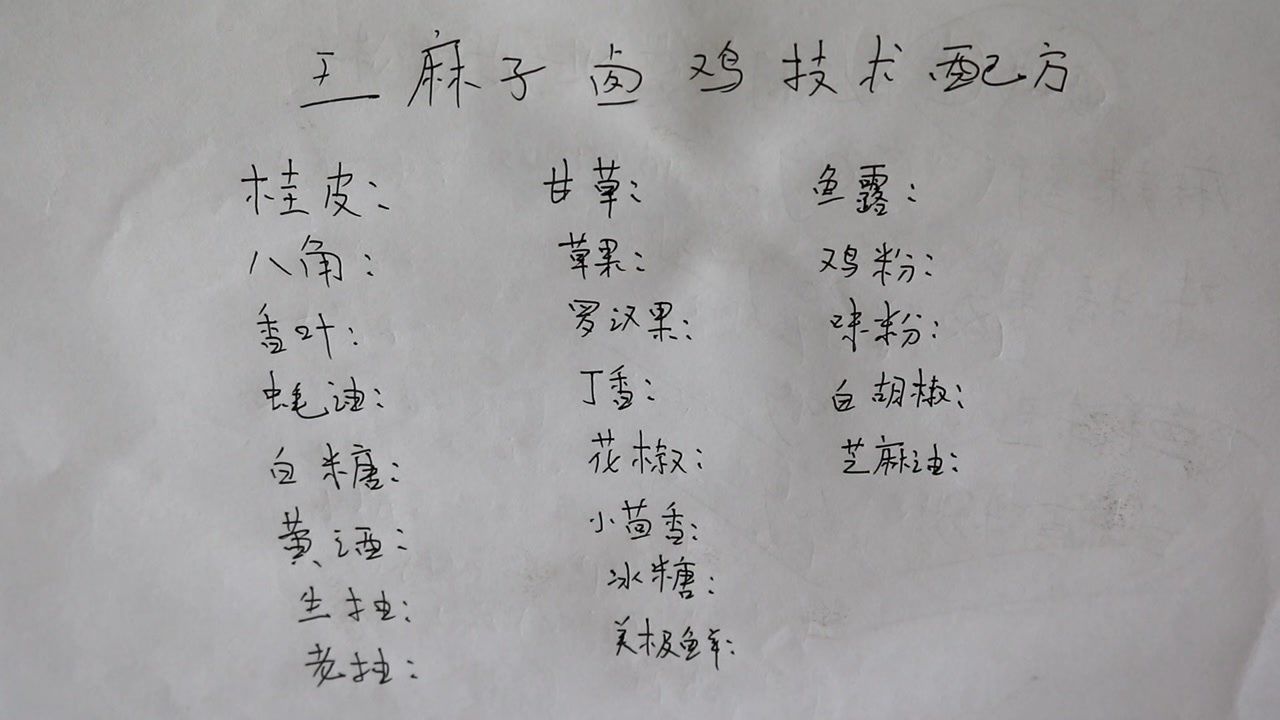 王麻子卤鸡技术配方
桂皮：
八角：
香叶：
蚝油：
白糖：
黄酒：
生抽：
老抽：
甘草：
草果：
罗汉果：
丁香：
花椒：
小茴香：
冰糖：
美极鲜：
鱼露：
鸡粉：
味粉：
白胡椒：
芝麻油：